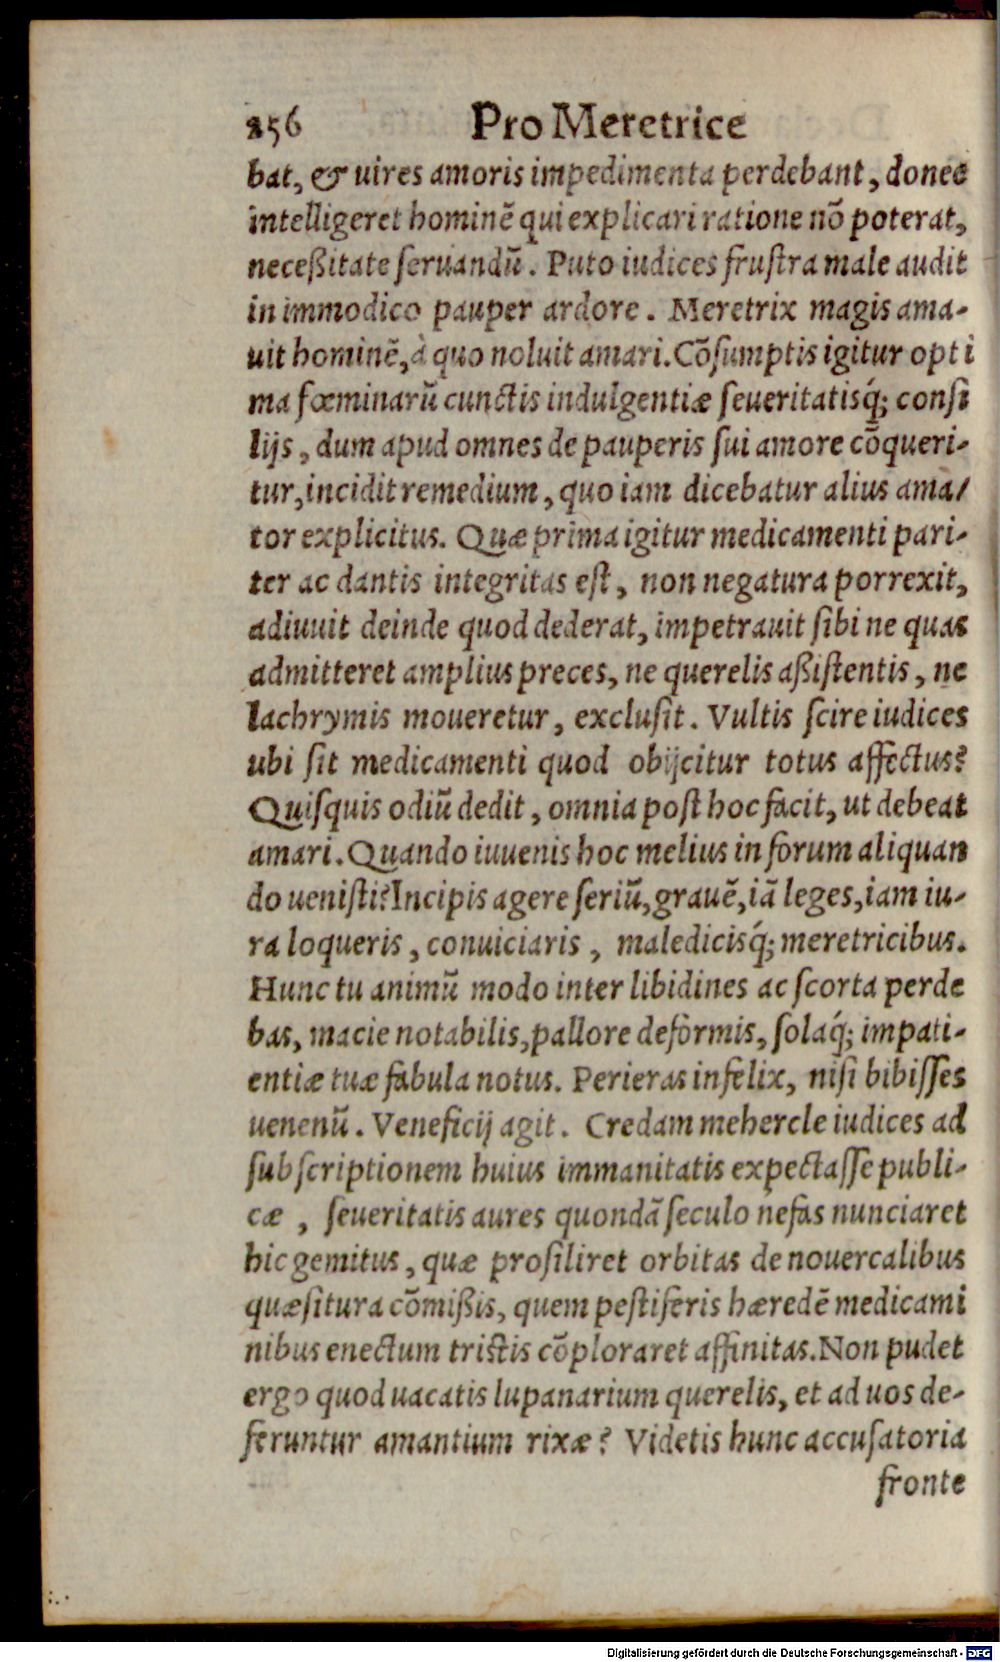 256 Pro Meretrice
bat, & uires amoris impedimenta perdebant, donec
intelligeret hominē qui explicari ratione nō poterat,
neceßitate seruandū. Puto iudices frustra male audit
in immodico pauper ardore. Meretrix magis ama-
uit hominē, à quo noluit amari. Cōsumptis igitur opti
ma fœminarū cunctis indulgentiæ seueritatisq́; consi
lijs, dum apud omnes de pauperis sui amore cōqueri-
tur, incidit remedium, quo iam dicebatur alius ama/
tor explicitus. Quæ prima igitur medicamenti pari-
ter ac dantis integritas est, non negatura porrexit,
adiuuit deinde quod dederat, impetrauit sibi ne quas
admitteret amplius preces, ne querelis aßistentis, ne
lachrymis moueretur, exclusit. Vultis scire iudices
ubi sit medicamenti quod obijcitur totus affectus?
Quisquis odiū dedit, omnia post hoc facit, ut debeat
amari. Quando iuuenis hoc melius in forum aliquan
do uenisti? Incipis agere seriū, grauē, iā leges, iam iu-
ra loqueris, conuiciaris, maledicisq́; meretricibus.
Hunc tu animū modo inter libidines ac scorta perde
bas, macie notabilis, pallore deformis, solaq́; impati-
entiæ tuæ fabula notus. Perieras infelix, nisi bibisses
uenenū. Veneficij agit. Credam mehercle iudices ad
subscriptionem huius immanitatis expectasse publi-
cæ, seueritatis aures quondā seculo nefas nunciaret
hic gemitus, quæ prosiliret orbitas de nouercalibus
quæsitura cōmißis, quem pestiferis hæredē medicami
nibus enectum tristis cōploraret affinitas. Non pudet
ergo quod uacatis lupanarium querelis, et ad uos de-
feruntur amantium rixæ? Videtis hunc accusatoria
fronte
Digitalisierung gefördert durch die Deutsche Forschungsgemeinschaft - DFG